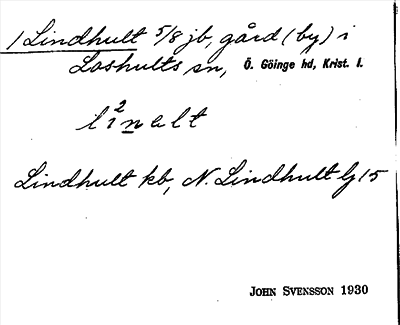 1 Lindhult 5/8 jb, gård (by) i
Loshults sn, Ö. Göinge hd, Krist. l.
2
linelt
Lindhult kb, N. Lindhult lj 15
JOHN SVENSSON 1930